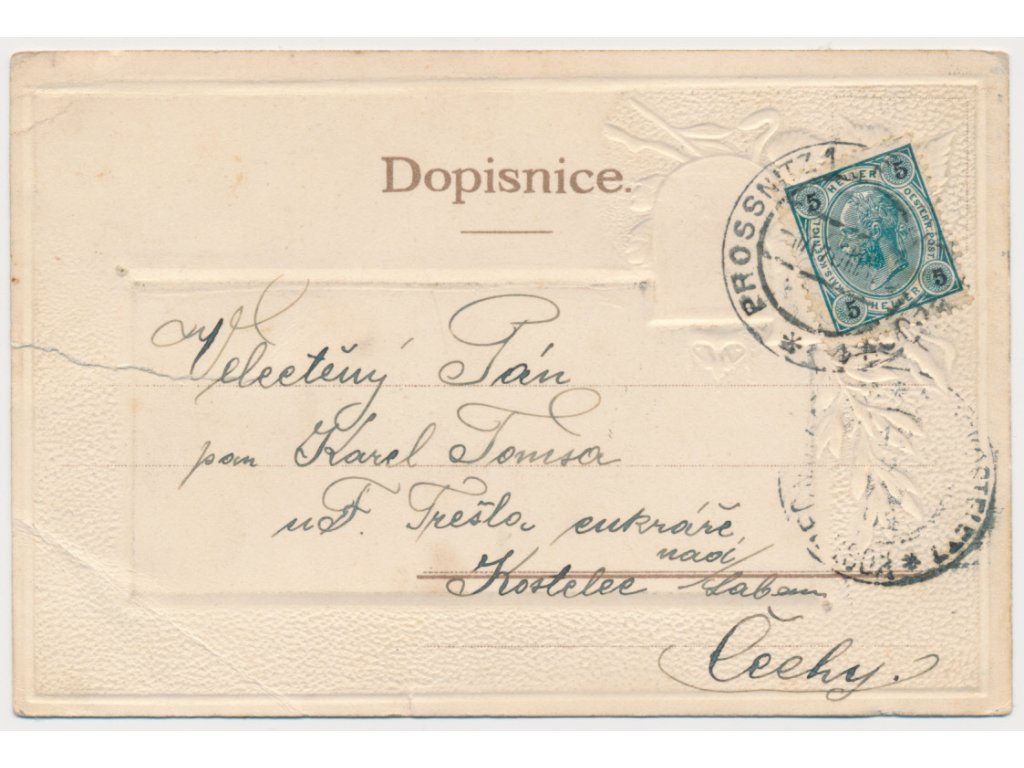 Dopisnice.
PROSSNITZ 1
5 HELLER 5
OESTERR. POST
5 HELLER 5
Velectěný Pán
pan Karel Tomsa
u F. Trešla cukráře
nad
Kostelec Labem
Čechy.